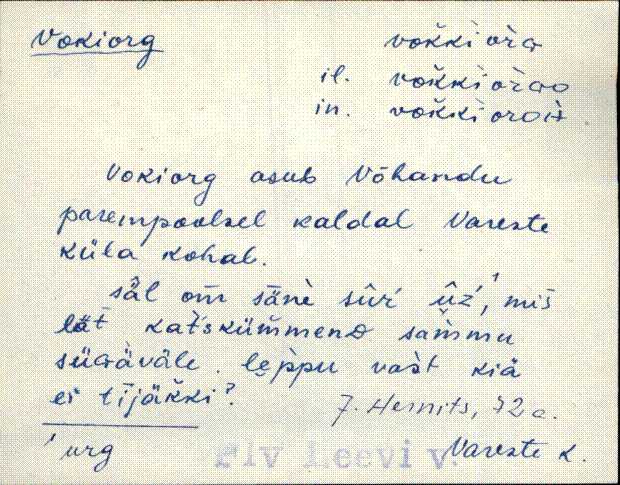 Vokiorg vokkì òrɑ
il. vokkì òrɑɔ
in. vokkì orɑit
Vokiorg asub Võhandu
parempoolsel kaldal Vareste
küla kohal.
säl om̄ sänè sûŕ ûź¹, mis
lät̄ kat̀skümmend sam̆mu
süɢävälè. leppu vast kiä
ei tijäkki?
J. Hernits, 72 a.
¹ urg Vareste k.
Plv Leevi v.